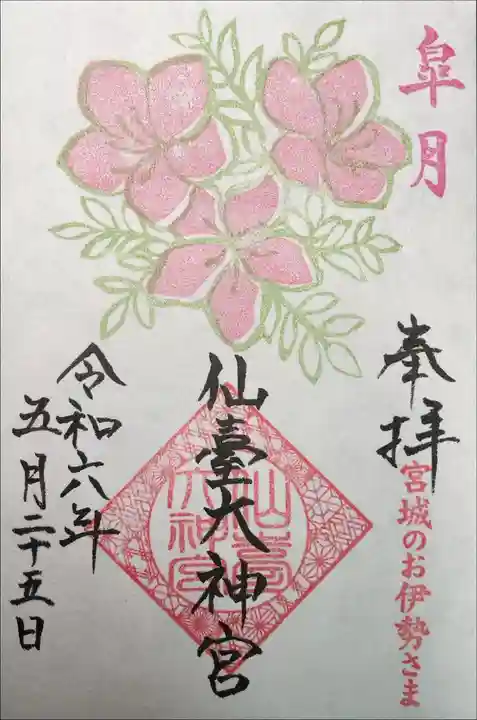 皐月
奉拝
宮城のお伊勢さま
仙臺大神宮
仙臺
大神宮
令和六年
五月二十五日